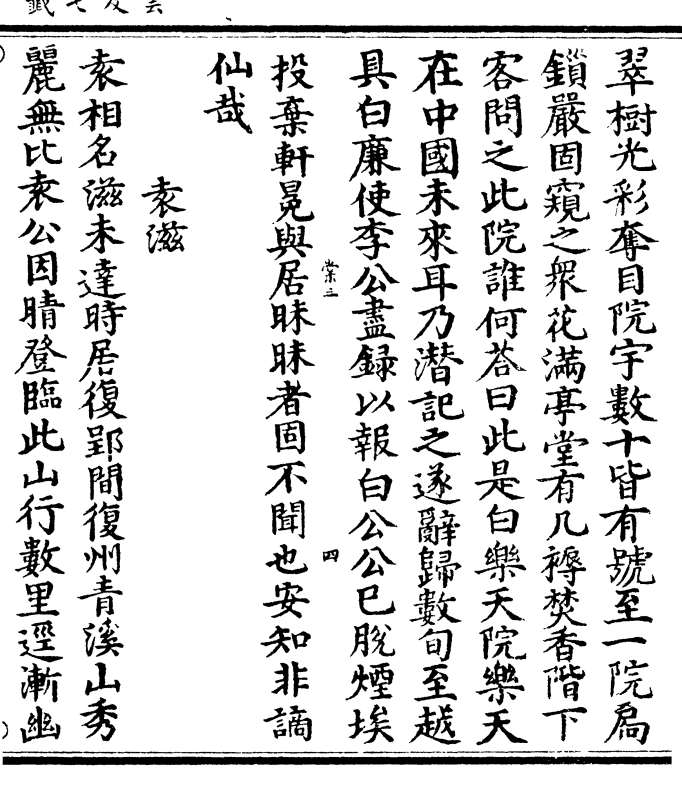 翠樹光彩奪目院宇數十皆有號至一院扃
鎖嚴固窺之衆花滿亭堂有几褥焚香階下
客問之此院誰何荅曰此是白樂天院樂天
在中國未來耳乃潛記之遂辭歸數旬至越
具白廉使李公盡録以報白公公已脫煙埃
棠三
四
投棄軒冕與居昧昧者固不聞也安知非謫
仙哉
袁滋
袁相名滋未達時居復郢間復州青溪山秀
麗無比袁公因晴登臨此山行數里逕漸幽